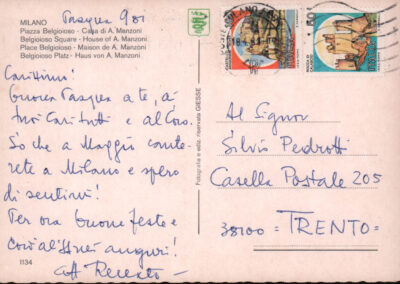 MILANO
Piazza Belgioioso - Casa di A. Manzoni
Belgioioso Square - House of A. Manzoni
Place Belgioioso - Maison de A. Manzoni
Belgioioso Platz - Haus von A. Manzoni
Pasqua 981
Carissimo!
Buona Pasqua a te, ai
tuoi Cari tutti e al Coro.
So che a Maggio cante-
rete a Milano e spero
di sentirvi!
Per ora buone feste e
auguri!
1134
Fotografia e ediz. riservata GIESSE
Al Signor
Silvio Pedrotti
Casella Postale 205
38100 = TRENTO =